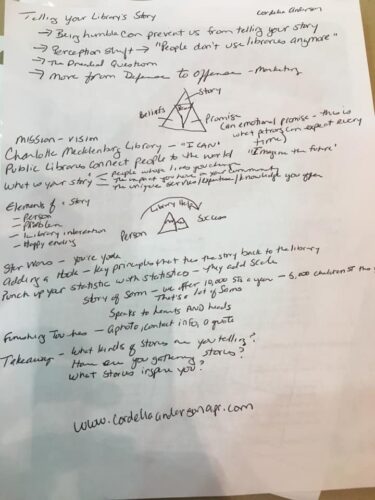 Telling Your Library's Story Cordelia Anderson
→ Being humble can prevent us from telling your story
→ Perception Shift → "People don't use libraries anymore"
→ The Dreaded Question
→ More from Defense to Offense - Marketing
Story
Beliefs
Promise
Can emotional promise - this is
what patrons can expect every
time)
Mission - vision
Charlotte Mecklenburg Library - "I CAN"
Public Libraries connect people to the world "Imagine the future"
What is your story - people whose lives you change
The impact you have in your community
The unique service/expertise/knowledge you offer
Elements of a Story
- Person
- Problem
- Library intervention
- Happy ending
Library Help
Person
Success
Star Wars - you're Yoda
Adding a Hook - key principles that ties the story back to the library
Punch up your statistic with statistics - they add scale
Story of Sam - we offer 10,000 STs a year - 5,000 children
That's a lot of Sams
Speaks to hearts AND heads
Finishing Touches - a photo, contact info, a quote
Takeaway - What kinds of stories are you telling?
How are you gathering stories?
What stories inspire you?
www.cordeliaandersonapr.com